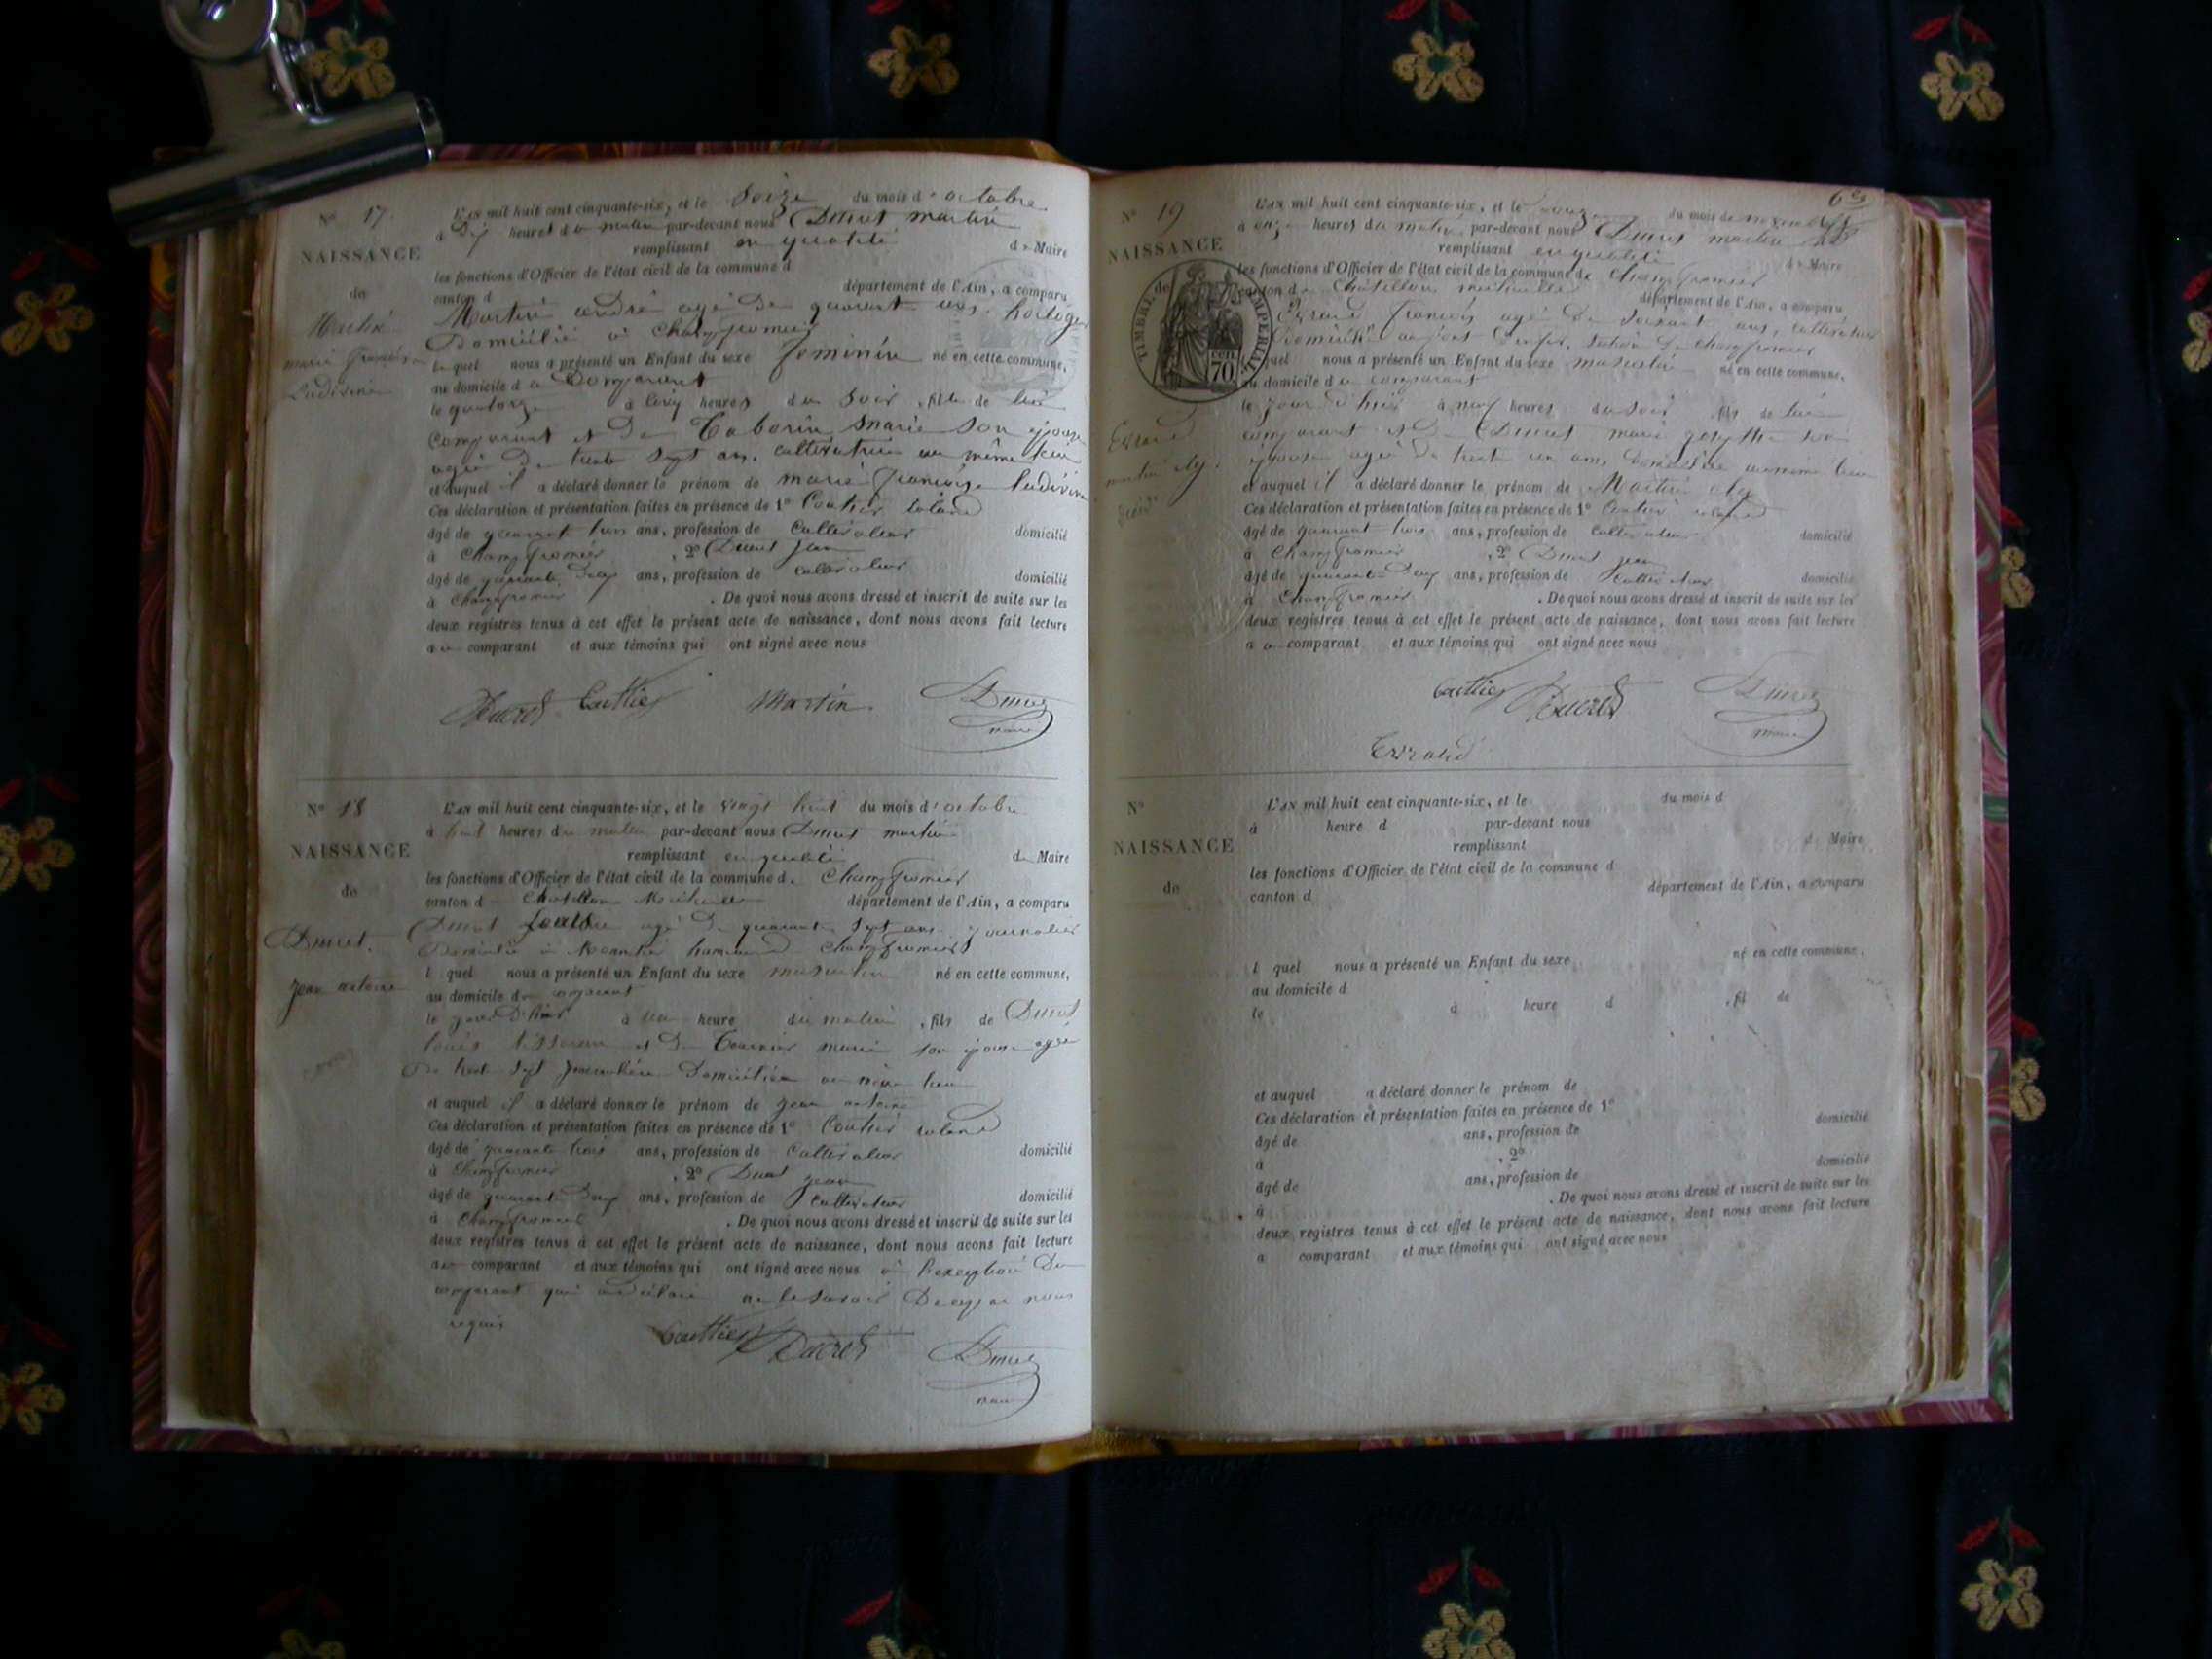 N° 17.
L'AN mil huit cent cinquante-six, et le Seize du mois d'octobre
à Dix heures du matin par-devant nous Ducret martin
NAISSANCE
remplissant en qualité de Maire
les fonctions d'Officier de l'état civil de la commune d
de
canton d département de l'Ain, a comparu
Martin
Martin andré agé de quarant ans, horloger
Domicilié à Champfromier
marie françoise
le quel nous a présenté un Enfant du sexe feminin né en cette commune,
Ludivine
au domicile du Comparant
le quatorze à cinq heures du Soir, fille de lui
comparant et de Taborin marie son épouse
agée de trente sept ans, cultivatrice au même lieu
et auquel il a déclaré donner le prénom de marie françoise ludivine
Ces déclaration et présentation faites en présence de 1° Coutier roland
âgé de quarant trois ans, profession de Cultivateur domicilié
à Champfromier, 2° Ducret jean
âgé de quarante deux ans, profession de cultivateur domicilié
à Champfromier. De quoi nous avons dressé et inscrit de suite sur les
deux registres tenus à cet effet le présent acte de naissance, dont nous avons fait lecture
au comparant et aux témoins qui ont signé avec nous
Ducret Coutier Martin Ducret
maire
N° 18
L'AN mil huit cent cinquante-six, et le vingt huit du mois d'octobre
à huit heures du matin par-devant nous Ducret martin
NAISSANCE
remplissant en qualité de Maire
les fonctions d'Officier de l'état civil de la commune d. Champfromier
de
canton d Chatillon Michaille département de l'Ain, a comparu
Ducret.
Ducret agé de quarante sept ans journalier
Domicilié à Champfromier
l quel nous a présenté un Enfant du sexe masculin né en cette commune,
jean antoine
au domicile du comparant
le jour d'hier à une heure du matin, fils de Ducret
louis et de Tournier marie son épouse agée
de trente sept journalière Domiciliée au même lieu
et auquel il a déclaré donner le prénom de jean antoine
Ces déclaration et présentation faites en présence de 1° Coutier roland
âgé de quarante trois ans, profession de Cultivateur domicilié
à Champfromier, 2° Ducret jean
âgé de quarante deux ans, profession de Cultivateur domicilié
à Champfromier. De quoi nous avons dressé et inscrit de suite sur les
deux registres tenus à cet effet le présent acte de naissance, dont nous avons fait lecture
au comparant et aux témoins qui ont signé avec nous à l'exception du
comparant qui a déclaré ne le savoir De ce par nous
requis
Coutier Ducret Ducret
maire
N° 19
L'AN mil huit cent cinquante-six, et le du mois de novembre
à onze heures du matin par-devant nous Ducret martin
NAISSANCE
remplissant en qualité de Maire
les fonctions d'Officier de l'état civil de la commune de Champfromier
de
canton de Châtillon michaille département de l'Ain, a comparu
TIMBRE IMPÉRIAL
cen 70
Evrard françois agé de soixant ans, cultivateur
Domicilié au pont d'enfer, section de Champfromier
quel nous a présenté un Enfant du sexe masculin né en cette commune,
au domicile du comparant
le jour d'hier à neuf heures du soir, fils de lui
Evrard
comparant et de Ducret marie son
martin
épouse agée de trent un ans, Domiciliée au même lieu
et auquel il a déclaré donner le prénom de Martin
Ces déclaration et présentation faites en présence de 1° Coutier roland
âgé de quarant trois ans, profession de Cultivateur domicilié
à Champfromier, 2° Ducret jean
âgé de quarante deux ans, profession de Cultivateur domicilié
à Champfromier. De quoi nous avons dressé et inscrit de suite sur les
deux registres tenus à cet effet le présent acte de naissance, dont nous avons fait lecture
au comparant et aux témoins qui ont signé avec nous
Coutier Ducret Ducret
maire
Evrard
N°
L'AN mil huit cent cinquante-six, et le du mois d
à heure d par-devant nous
NAISSANCE
remplissant d Maire
les fonctions d'Officier de l'état civil de la commune d
de
canton d département de l'Ain, a comparu
l quel nous a présenté un Enfant du sexe né en cette commune,
au domicile d
le à heure d, fil de
et auquel a déclaré donner le prénom de
Ces déclaration et présentation faites en présence de 1°
âgé de ans, profession de domicilié
à, 2°
âgé de ans, profession de domicilié
à. De quoi nous avons dressé et inscrit de suite sur les
deux registres tenus à cet effet le présent acte de naissance, dont nous avons fait lecture
a comparant et aux témoins qui ont signé avec nous